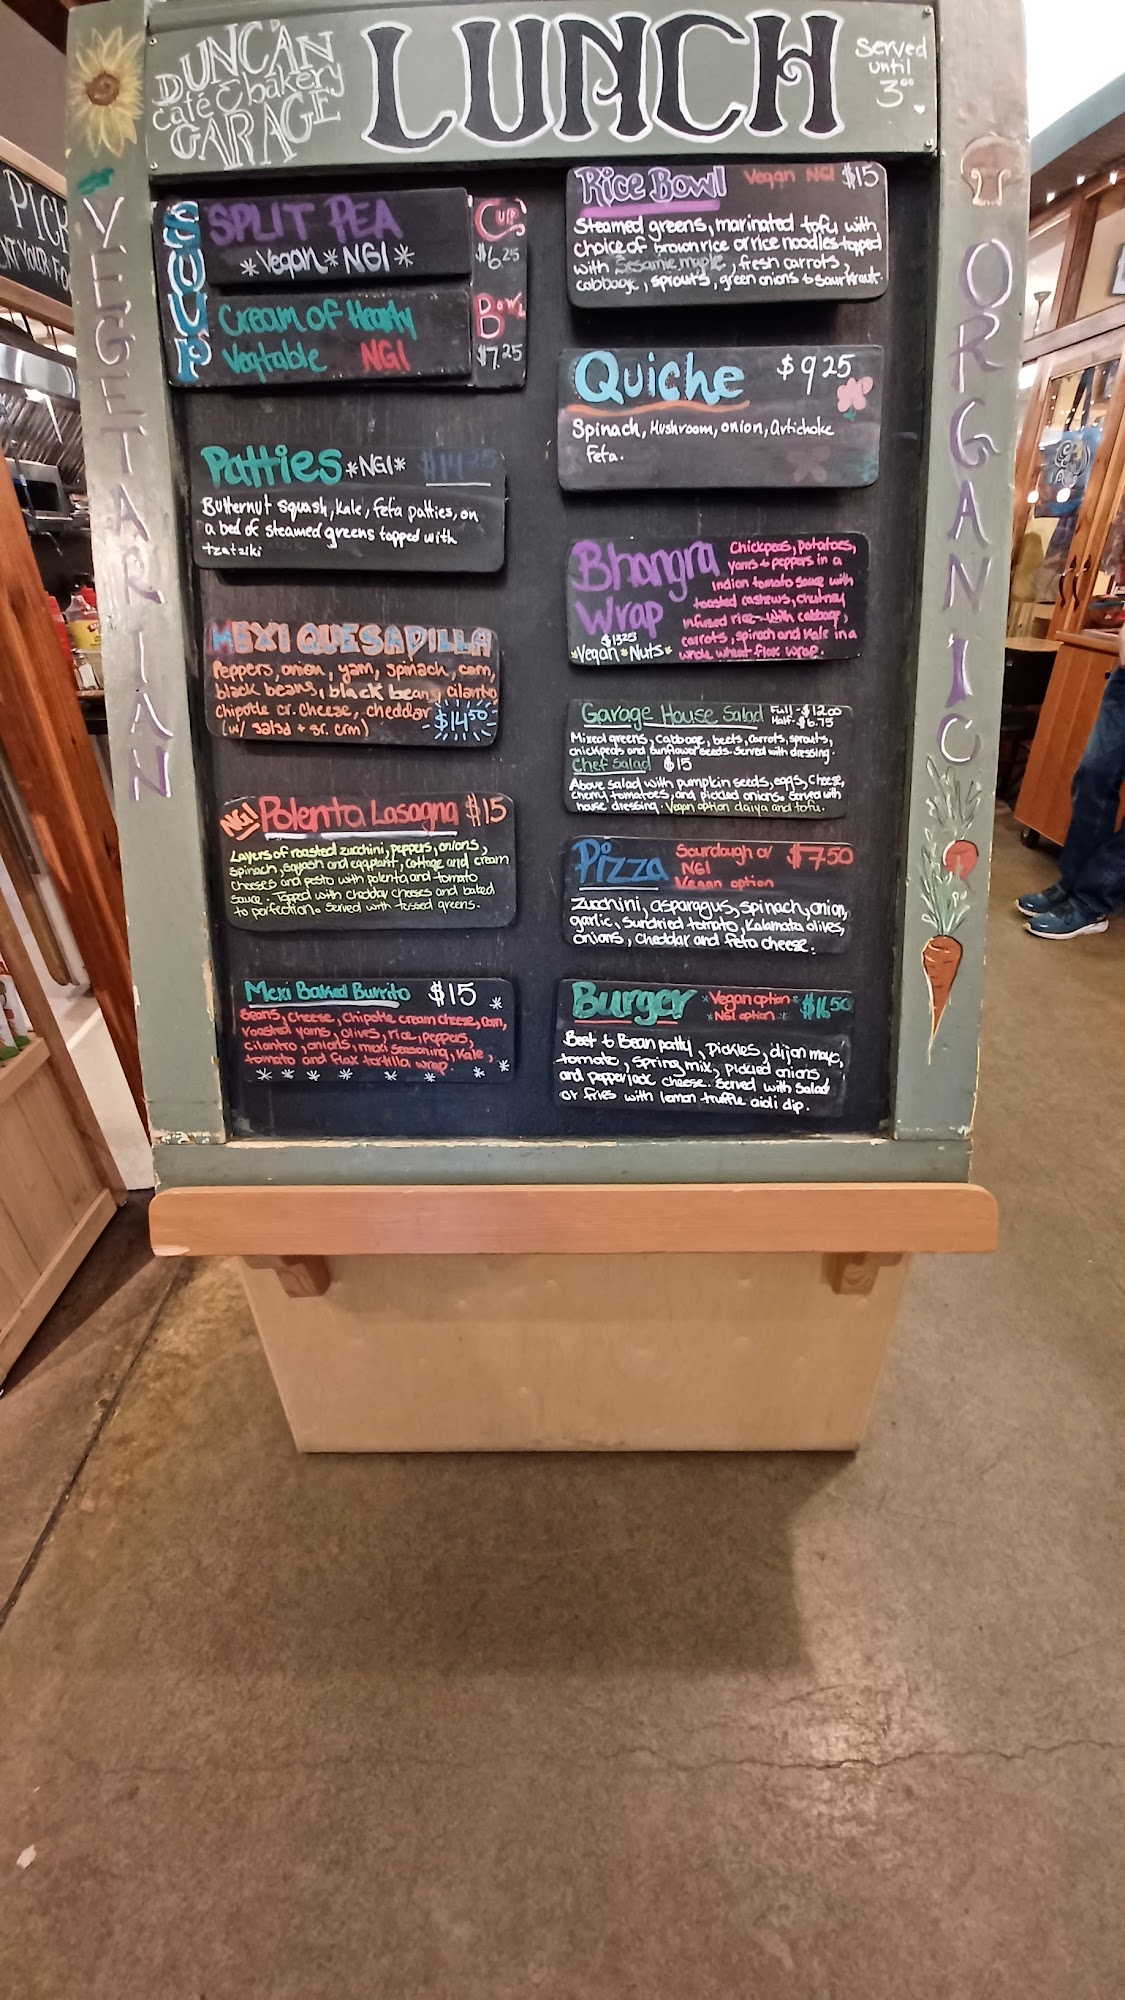 DUNCAN
café & bakery
GARAGE
LUNCH
Served
until
3°°
VEGETARIAN
ORGANIC
PICK
SOUP
SPLIT PEA
*Vegan*NGI*
Cream of Hearty
Vegtable NGI
CUP
$6.25
Bowl
$7.25
Patties *NGI* $14.25
Butternut Squash, Kale, feta patties, on
a bed of steamed greens topped with
tzatziki
MEXI QUESADILLA
Peppers, onion, yam, spinach, corn,
black beans, black bean, cilantro
Chipotle cr. cheese, cheddar $14.50
(w/ salsa + sr. crm)
NGI Polenta Lasagna $15
Layers of roasted zucchini, peppers, onions,
spinach, squash and eggplant, cottage and cream
cheeses and pesto with polenta and tomato
sauce. Topped with cheddar cheeses and baked
to perfection. Served with tossed greens.
Mexi Baked Burrito $15
Beans, cheese, chipotle cream cheese, corn,
roasted yams, olives, rice, peppers,
cilantro, onions, mexi seasoning, kale,
tomato and flax tortilla wrap.
Rice Bowl Vegan NGI $15
Steamed greens, marinated tofu with
choice of brown rice or rice noodles topped
with Sesame maple, fresh carrots,
cabbage, sprouts, green onions & sauerkraut.
Quiche $9.25
Spinach, Mushroom, onion, Artichoke
Feta.
Bhangra
Wrap
$13.25
*Vegan *Nuts*
Chickpeas, Potatoes,
yams & peppers in a
Indian tomato sauce with
toasted cashews, chutney
infused rice with cabbage,
carrots, spinach and Kale in a
whole wheat flax wrap.
Garage House Salad Full - $12.00
Half - $6.75
Mixed greens, cabbage, beets, carrots, sprouts,
chickpeas and sunflower seeds. Served with dressing.
Chef Salad $15
Above salad with pumpkin seeds, eggs, cheese,
cherry tomatoes, and pickled onions. Served with
house dressing. Vegan option daiya and tofu.
Pizza Sourdough or NGI Vegan option $7.50
Zucchini, asparagus, spinach, onion,
garlic, sundried tomato, Kalamata olives,
onions, cheddar and feta cheese.
Burger *Vegan option* *NGI option* $16.50
Beet & Bean patty, pickles, dijon mayo,
tomato, spring mix, pickled onions
and pepperjack cheese. Served with Salad
or fries with lemon truffle aioli dip.